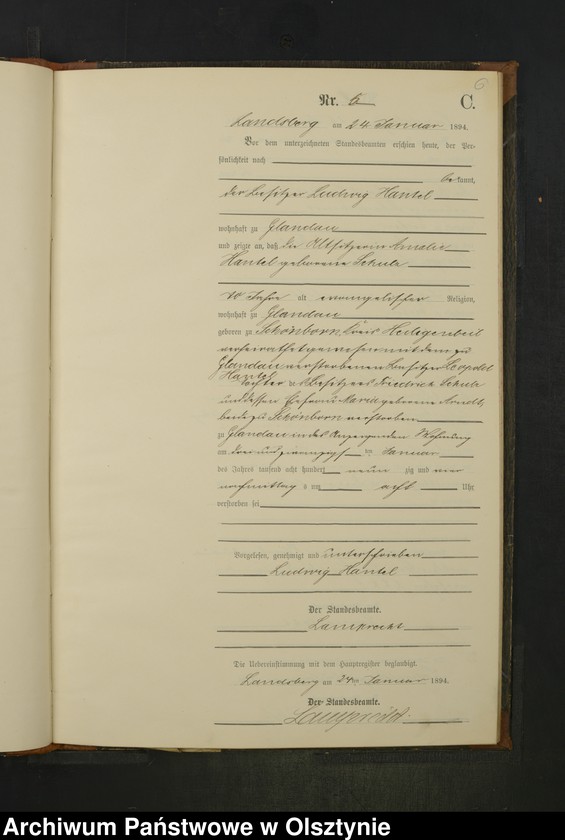 6
Nr. 6 C.
Landsberg am 24 Januar 1894.
Vor dem unterzeichneten Standesbeamten erschien heute, der Per-
sönlichkeit nach
bekannt,
der Besitzer Ludwig Hantel
wohnhaft zu Glandau
und zeigte an, daß die Altsitzerin Amalie
Hantel geborene Schulz
70 Jahre alt evangelischer Religion,
wohnhaft zu Glandau
geboren zu Schönborn Kreis Heiligenbeil
verheirathet gewesen mit dem zu
Glandau verstorbenen Besitzer Leopold
Hantel
Tochter des Besitzers Friedrich Schulz
und dessen Ehefrau Maria geborene Arndt,
beide zu Schönborn verstorben
zu Glandau in des Anzeigenden Wohnung
am drei und zwanzigsten Januar
des Jahres tausend acht hundert neun zig und vier
nachmittag s um acht Uhr
verstorben sei
Vorgelesen, genehmigt und unterschrieben
Ludwig Hantel
Der Standesbeamte.
Lamprecht
Die Uebereinstimmung mit dem Hauptregister beglaubigt.
Landsberg am 24 Januar 1894.
Der Standesbeamte.
Lamprecht
Archiwum Państwowe w Olsztynie